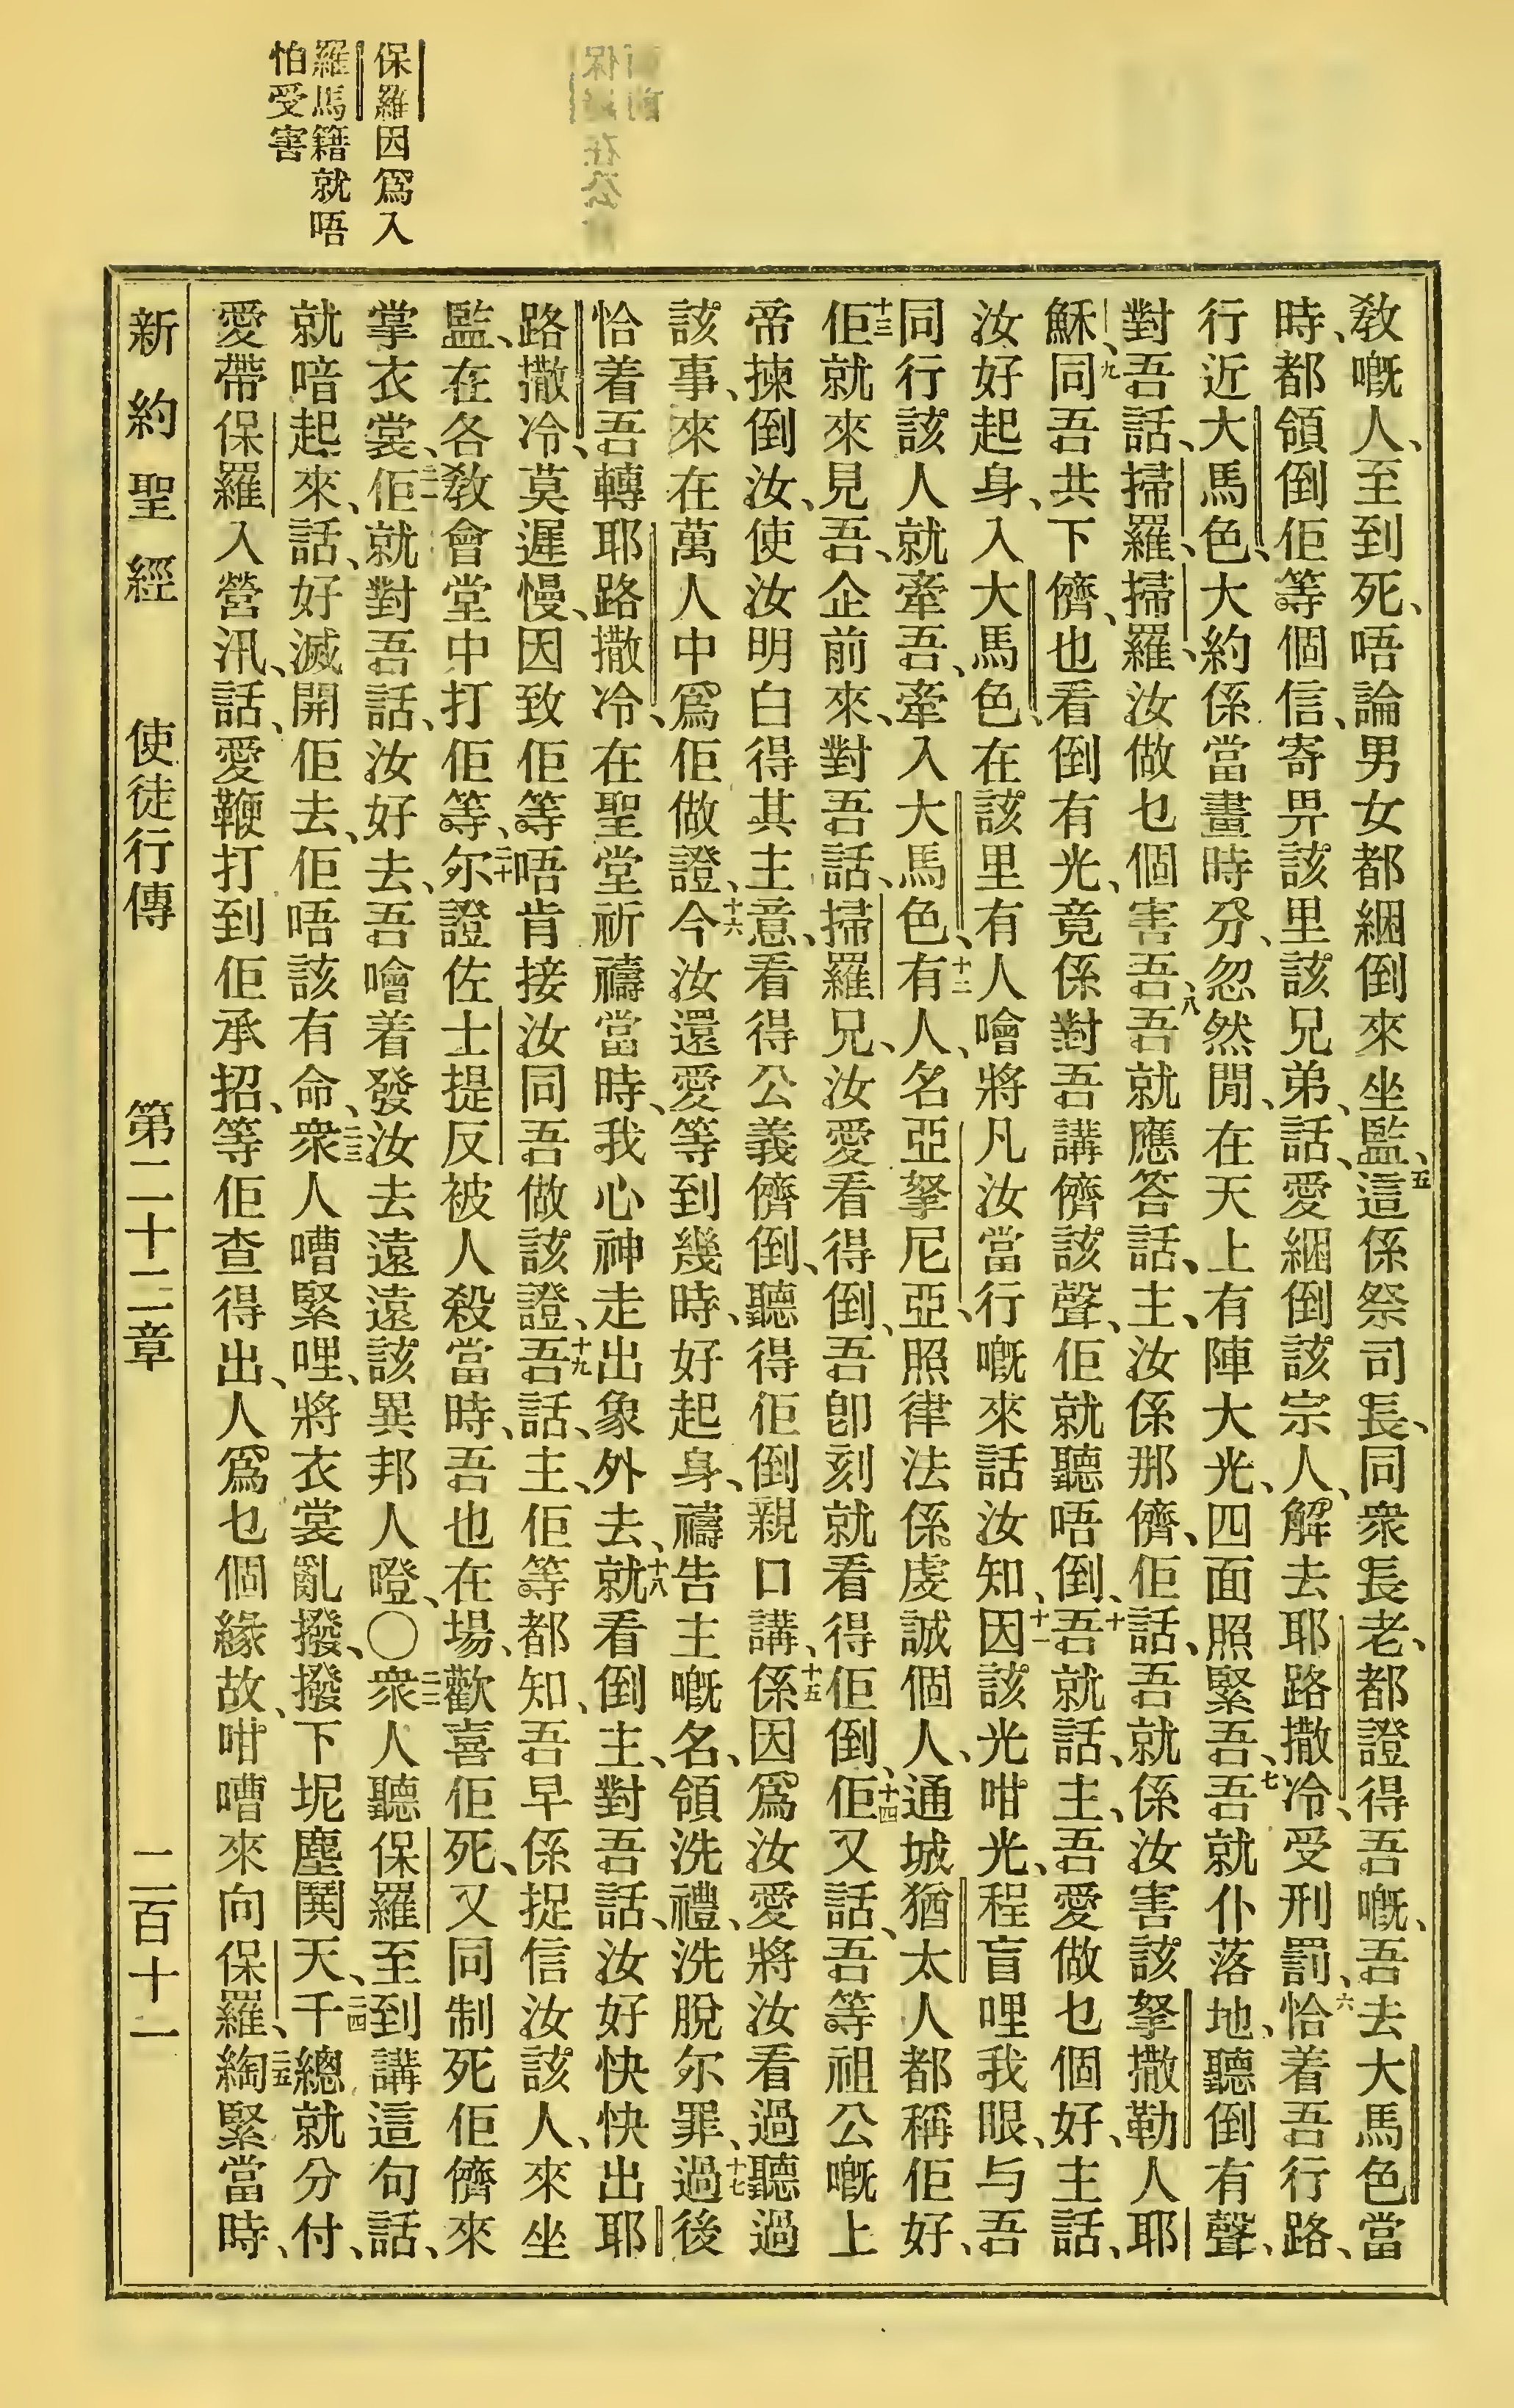 保羅因爲入
羅馬籍就唔
怕受害
教嘅人、至到死、唔論男女都綑倒來坐監、五這係祭司長、同衆長老、都證得吾嘅、吾去大馬色當
時、都領倒佢等個信、寄畀該里該兄弟、話、愛綑倒該宗人、解去耶路撒冷、受刑罰、六恰着吾行路、
行近大馬色、大約係當晝時分、忽然閒、在天上有陣大光、四面照緊吾、七吾就仆落地、聽倒有聲、
對吾話、掃羅、掃羅、汝做乜個害吾、八吾就應答話、主、汝係那儕、佢話、吾就係汝害該拏撒勒人耶
穌、九同吾共下儕、也看倒有光、竟係對吾講儕該聲、佢就聽唔倒、十吾就話、主、吾愛做乜個好、主話、
汝好起身、入大馬色、在該里有人噲將凡汝當行嘅來話汝知、十一因該光咁光、程盲哩我眼、与吾
同行該人就牽吾、牽入大馬色、十二有人、名亞拏尼亞、照律法係虔誠個人、通城猶太人都稱佢好、
十三佢就來見吾、企前來、對吾話、掃羅兄、汝愛看得倒、吾卽刻就看得佢倒、十四佢又話、吾等祖公嘅上
帝揀倒汝、使汝明白得其主意、看得公義儕倒、聽得佢倒親口講、十五係因爲汝愛將汝看過聽過
該事、來在萬人中爲佢做證、十六今汝還愛等到幾時、好起身、禱告主嘅名、領洗禮、洗脫尔罪、十七過後
恰着吾轉耶路撒冷、在聖堂祈禱當時、我心神走出象外去、十八就看倒主、對吾話、汝好快快出耶
路撒冷、莫遲慢、因致佢等唔肯接汝同吾做該證、十九吾話、主、佢等都知、吾早係捉信汝該人、來坐
監、在各教會堂中打佢等、二十尔證佐士提反被人殺當時、吾也在場、歡喜佢死、又同制死佢儕來
掌衣裳、二一佢就對吾話、汝好去、吾噲着發汝去遠遠該異邦人嶝、〇二二衆人聽保羅至到講這句話、
就喑起來、話、好滅開佢去、佢唔該有命、二三衆人嘈緊哩、將衣裳亂撥、撥下坭塵鬨天、二四千總就分付、
愛帶保羅入營汛、話、愛鞭打到佢承招、等佢查得出、人爲乜個緣故、咁嘈來向保羅、二五綯緊當時、
新約聖經 使徒行傳 第二十二章 二百十一